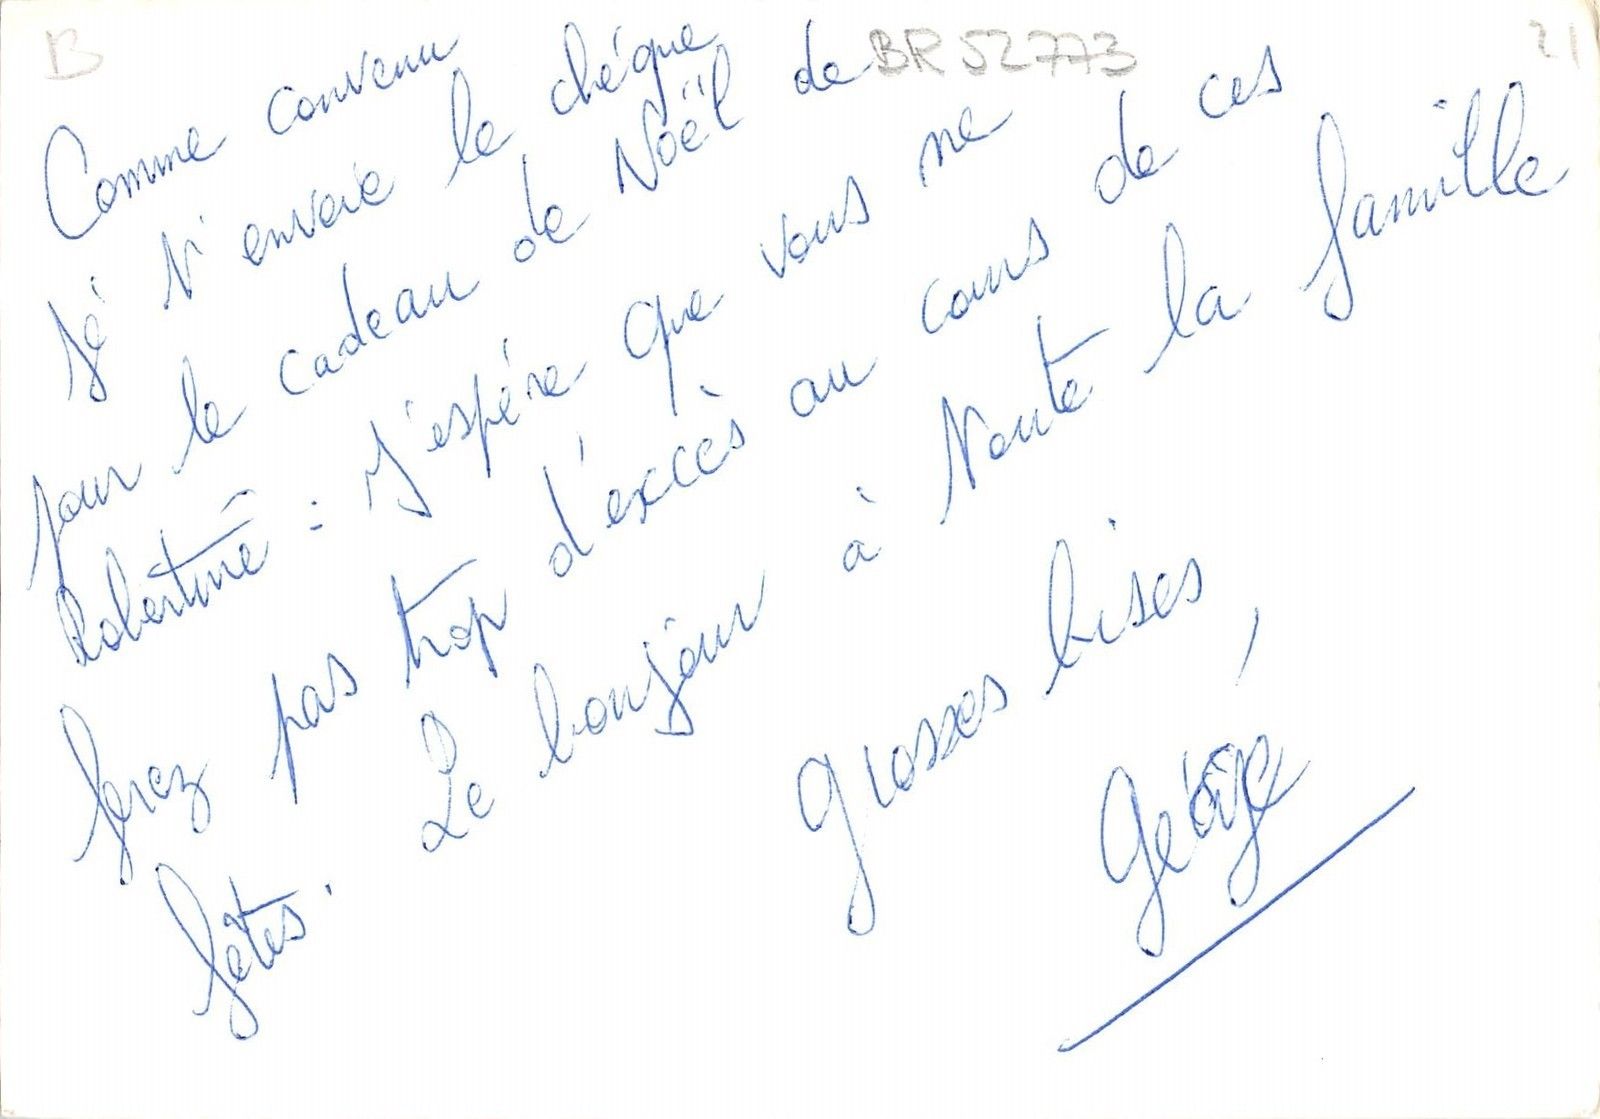 B
BR 52773
21
Comme convenu
je t'envoie le chèque
pour le cadeau de Noël de
Robertine. J'espère que vous ne
ferez pas trop d'excès au cours de ces
fêtes. Le bonjour à toute la famille
grosses bises,
George